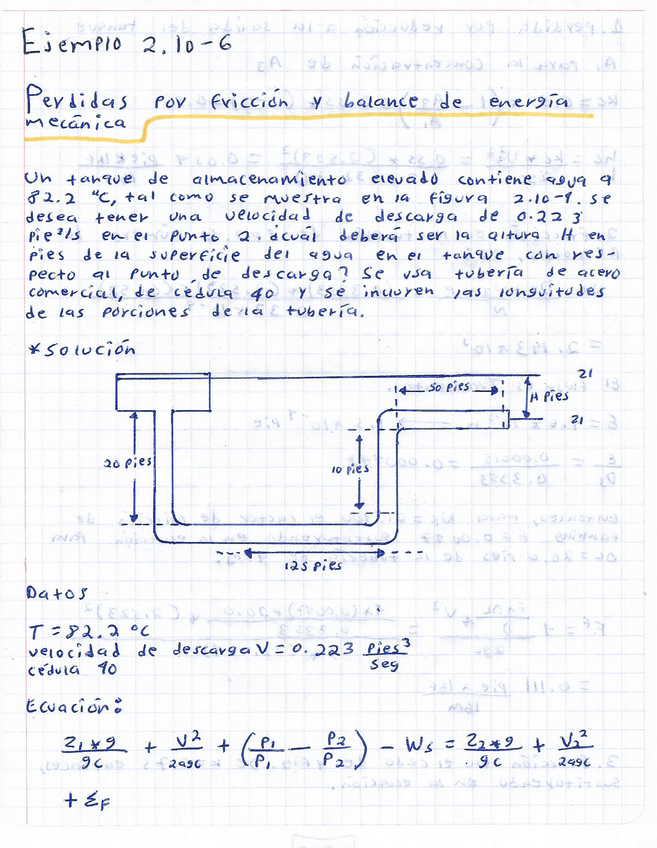 Ejemplo 2.10-6
Perdidas por fricción y balance de energía
mecánica
Un tanque de almacenamiento elevado contiene agua a
82.2 °C, tal como se muestra en la figura 2.10-4. se
desea tener una velocidad de descarga de 0.223
pie³/s en el punto 2. ¿cuál deberá ser la altura H en
pies de la superficie del agua en el tanque con res-
pecto al punto de descarga? Se usa tubería de acero
comercial, de cédula 40 y se incluyen las longuitudes
de las porciones de la tubería.
*Solución
50 pies
21
H pies
21
20 pies
10 pies
125 pies
Datos
T = 82.2 °C
velocidad de descarga V = 0.223 pies³/seg
cédula 40
Ecuación:
Z1*g/gc + V²/2agc + (P1/P1 - P2/P2) - Ws = Z2*g/gc + V2²/2agc
+ ΣF